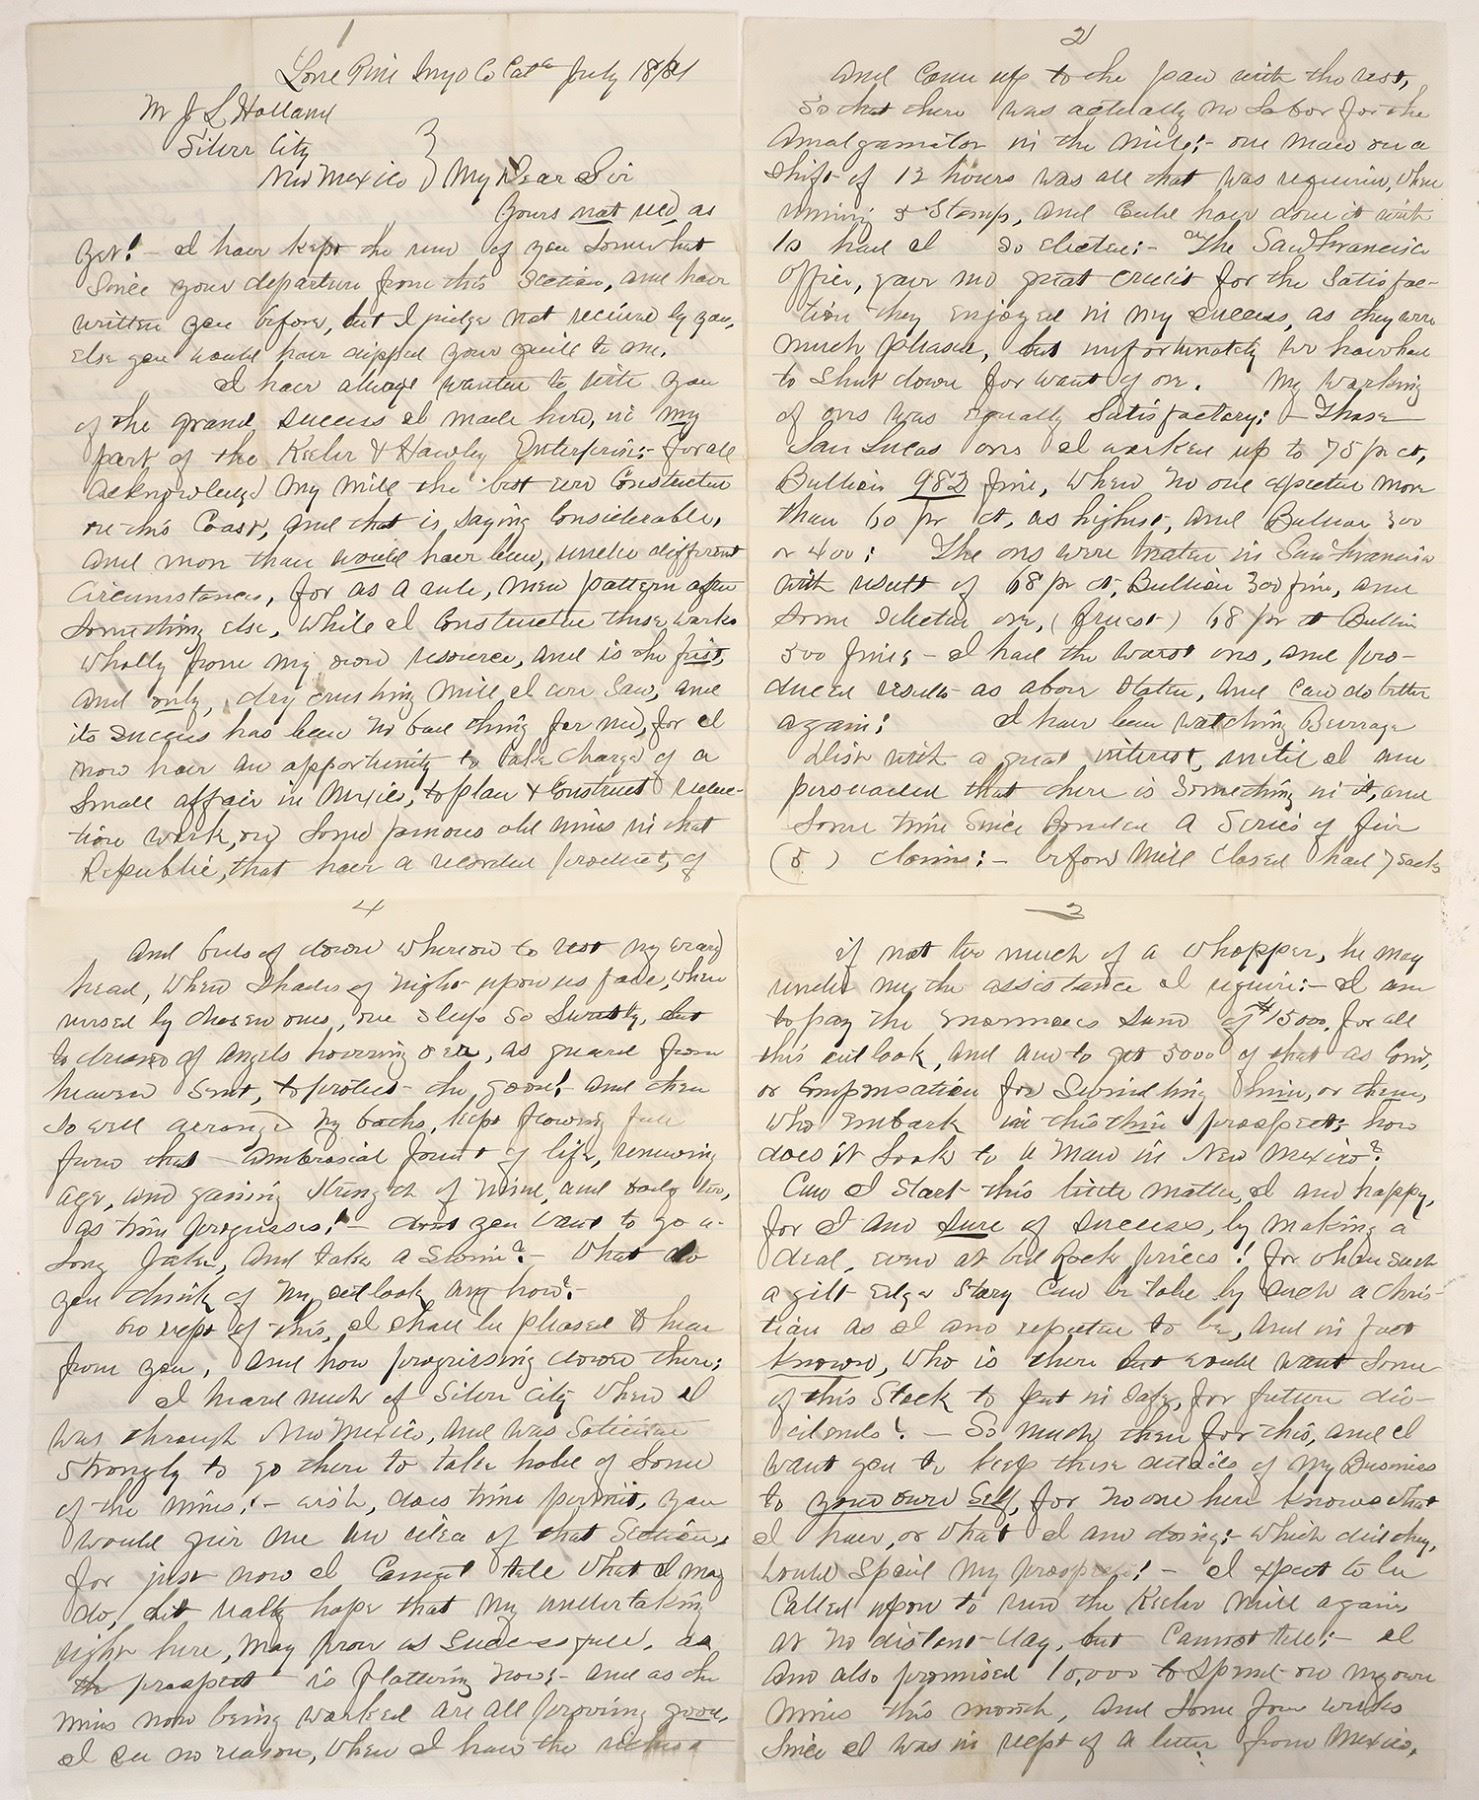 1
Lone Pine Inyo Co Cala July 18/81
Mr J L Holland
Silver City
New Mexico } My Dear Sir
Yours not recd, as
yet! – I have kept the run of you somewhat
Since your departure from this Section, and have
written you before, but I judge not received by you,
else you would have dipped your quill to me.
I have always wanted to write you
of the grand success I made here, in my
part of the Keeler & Hawley Enterprise:- for all
acknowledged my mill the best ever Constructed
on this Coast, and that is saying Considerable,
and more than would have been, under different
Circumstances, for as a rule, men pattern after
Something else, while I Constructed these works
wholly from my own resource, and is the first,
and only, dry crushing mill I ever Saw, and
its success has been no bad thing for me, for I
now have an opportunity to take charge of a
Small affair in Mexico, to plan & Construct reduc-
tion work, on some famous old mines in that
Republic, that have a recorded product, of
2
and Come up to the pan with the rest,
So that there was actually no labor for the
Amalgamator in the mill:- one man on a
Shift of 12 hours was all that was required, when
running 5 Stamps, and Could have done it with
10 had I so elected:- The San Francisco
Office, gave me great credit for the Satisfac-
tion they enjoyed in my success, as they were
much pleased, but unfortunately we have had
to Shut down for want of ore. My working
of ores was equally Satisfactory: – Those
San Lucas ores I worked up to 75 pr ct,
Bullion 982 fine, when no one expected more
than 60 pr ct, as highest, and Bullion 300
or 400: The ores were treated in San Francisco
with result of 68 pr ct, Bullion 300 fine, and
some selected ore, 68 pr ct Bullion
500 fine: – I had the worst ores, and pro-
duced results as above stated, and can do better
again: I have been watching Beverage
Dist with a great interest, until I am
persuaded that there is Something in it, and
Some time Since Bonded a Series of five
(5) claims: – before Mill closed had 7 sacks
4
and beds of down whereon to rest my weary
head, when Shades of Night upon us fade, when
nursed by chosen ones, one sleeps so Sweetly, but
to dream of angels hovering oer, as guard from
heaven sent, to protect the good! and then
so well arranged my books, kept flowing full
from that ambrosial fount of life, renewing
age, and gaining strength of mind, and body too,
as time progresses! – don't you want to go a-
long Jake, and take a Swim? – What do
you think of my outlook any how?
On rcept of this, I shall be pleased to hear
from you, and how progressing down there:
I heard much of Silver City when I
was through New Mexico, and was Solicited
Strongly to go there to take hold of some
of the mines: – wish, does time permit, you
would give me an idea of that Section,
for just now I Cannot tell what I may
do, but really hope that my undertaking
right here, may prove as successful, as
the prospect is flattering now:- and as the
mines now being worked are all proving good,
I see no reason, when I have the richest
3
if not too much of a whopper, he may
render me the assistance I require: – I am
to pay the enormous Sum of $15000, for all
this outlook, and am to get 5000 of that as Com,
or Compensation for Swindling him, or them,
who embark in this thin prospect: how
does it look to a man in New Mexico?
Can I Start this little matter, I am happy,
for I am sure of success, by making a
deal, even at bed Rock prices! for when such
a gilt Edge Story Can be told by such a Chris-
tian as I am reputed to be, and in fact
known, who is there but would want some
of this Stock to put in Safe, for future div-
idends? – So much then for this, and I
want you to keep these details of my Business
to your own Self, for no one here knows what
I have, or what I am doing:- which did they,
would Spoil my prospect! – I expect to be
Called upon to run the Keeler Mill again,
at no distant day, but Cannot tell: – I
am also promised 10,000 to spend on my own
Mines this month, and some few weeks
Since I was in recpt of a letter from Mexico,